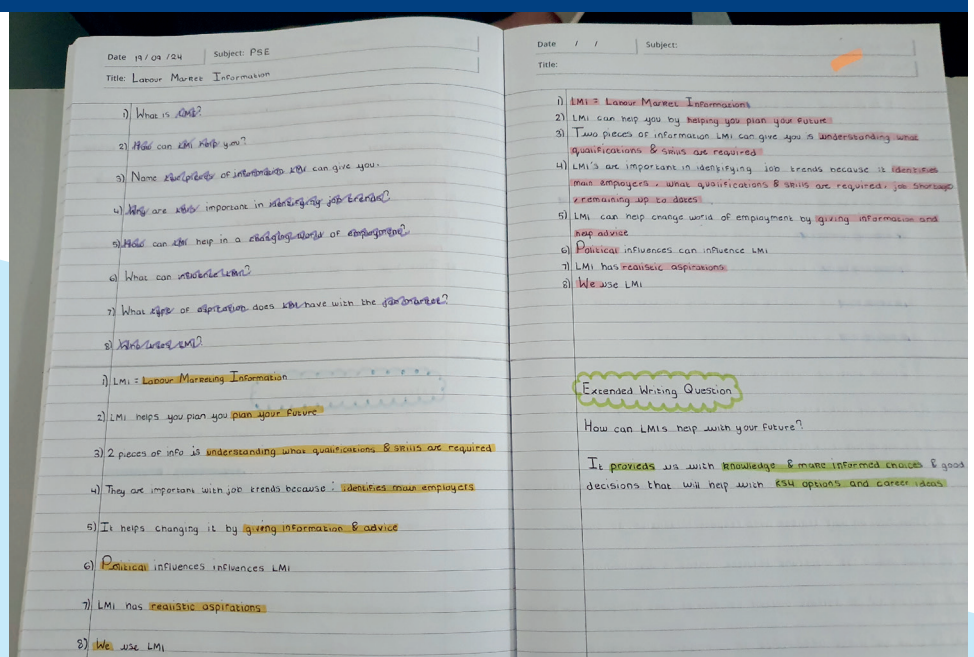 Date 19/09/24 Subject: PSE
Title: Labour Market Information
1) What is LMI?
2) How can LMI help you?
3) Name two pieces of information LMI can give you.
4) Why are LMIs important in identifying job trends?
5) How can LMI help in a changing world of employment?
6) What can influence LMI?
7) What type of aspiration does LMI have with the job market?
8) Who uses LMI?
1) LMI = Labour Marketing Information
2) LMI helps you plan you plan your future
3) 2 pieces of info is understanding what qualifications & skills are required
4) They are important with job trends because : identifies main employers
5) It helps changing it by giving information & advice
6) Political influences influences LMI
7) LMI has realistic aspirations
8) We use LMI
Date / / Subject:
Title:
1) LMI = Labour Market Information
2) LMI can help you by helping you plan your future
3) Two pieces of information LMI can give you is understanding what
qualifications & skills are required
4) LMI's are important in identifying job trends because it identifies
main employers, what qualifications & skills are required, job shortage
& remaining up to dates
5) LMI can help change world of employment by giving information and
help advice
6) Political influences can influence LMI
7) LMI has realistic aspirations
8) We use LMI
Extended Writing Question
How can LMIs help with your future?
It provieds us with knowledge & make informed choices & good
decisions that will help with KS4 options and career ideas.